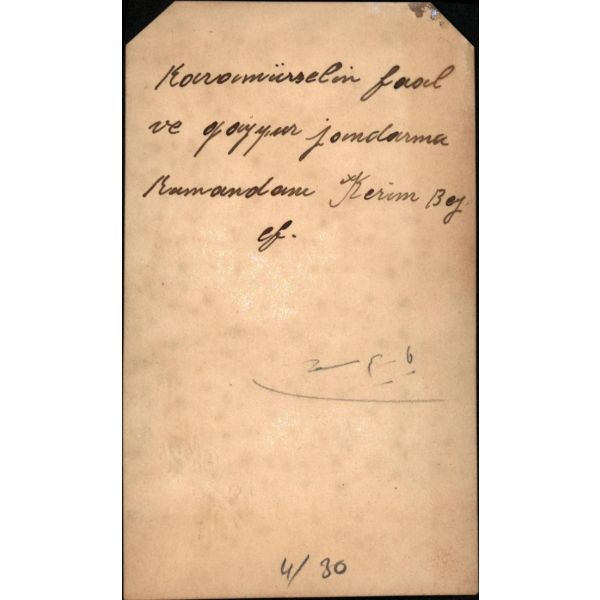 Karamürselin faal
ve gayyur jandarma
Kumandanı Kerim Bey
ef.
4/30